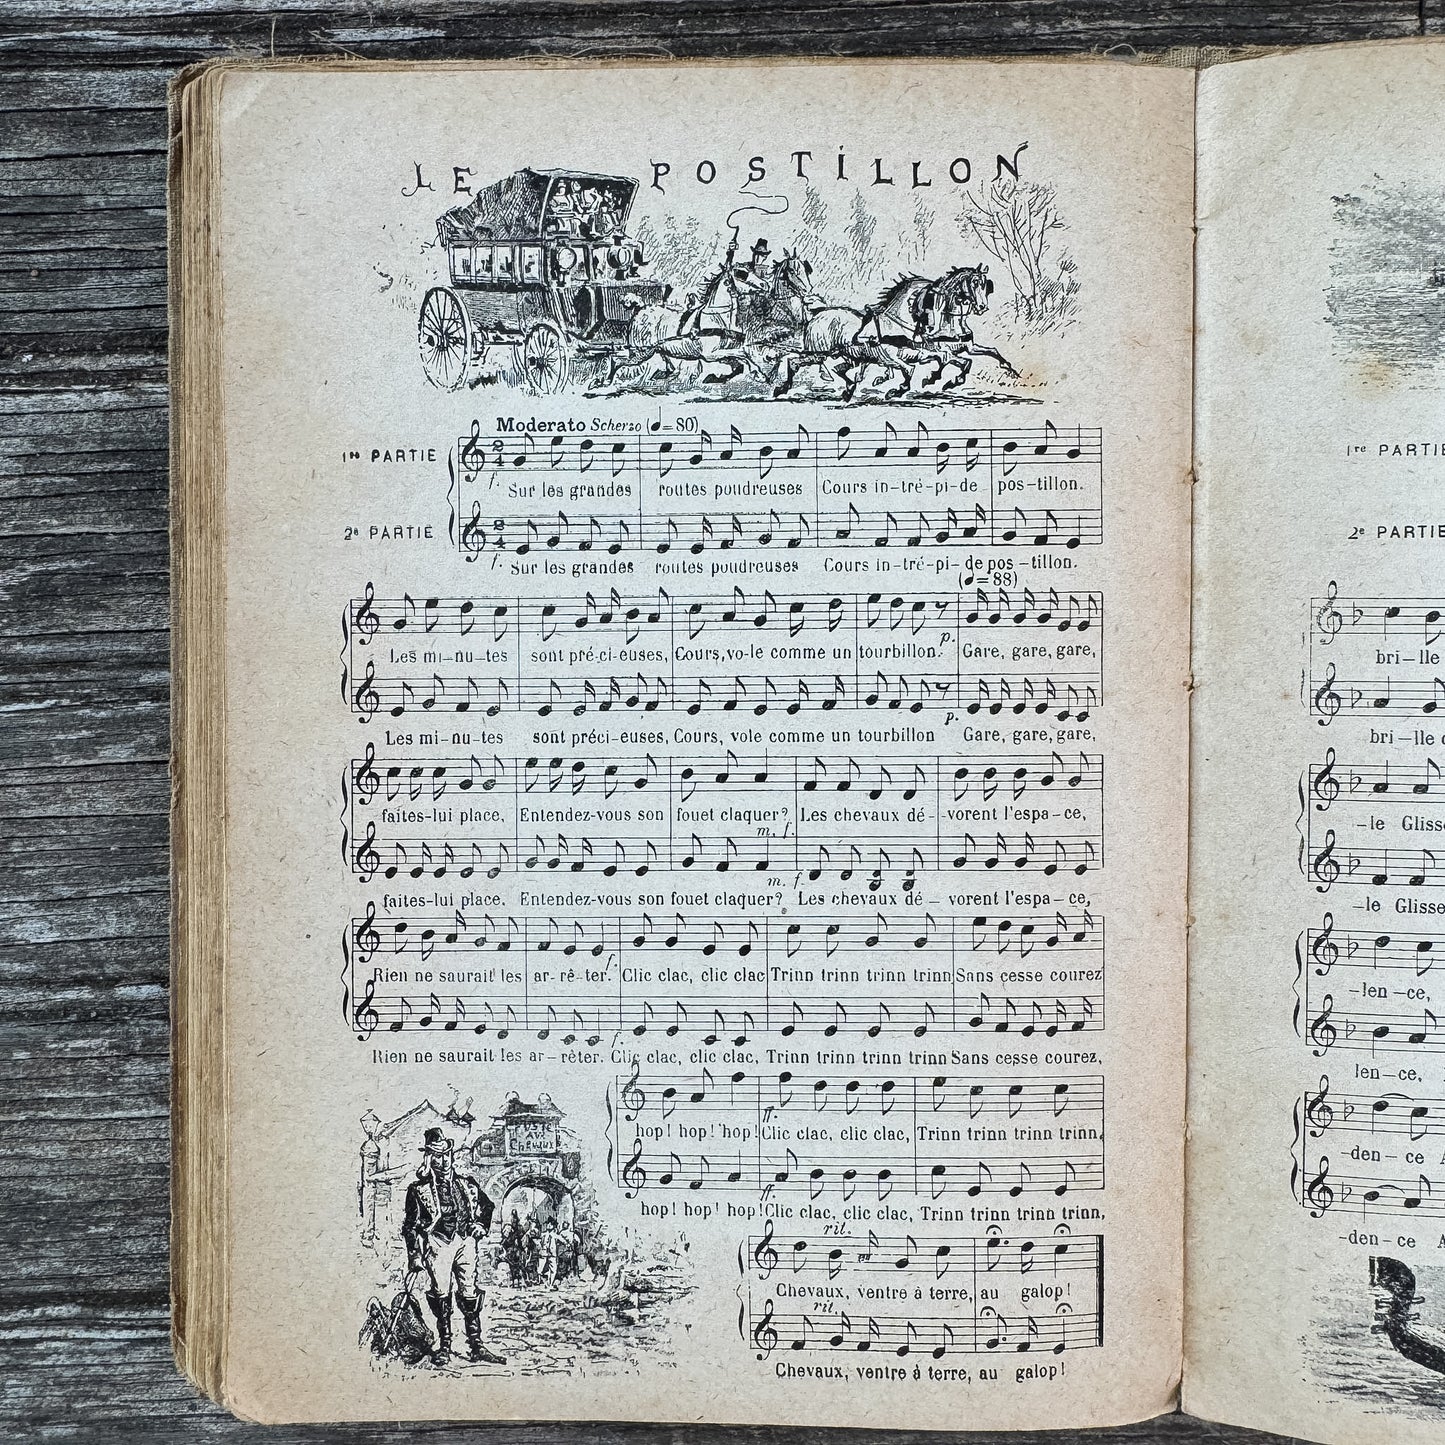 LE POSTILLON
Moderato Scherzo (♩=80)
1re PARTIE
f. Sur les grandes routes poudreuses Cours in-tré-pi-de pos-tillon.
2e PARTIE
f. Sur les grandes routes poudreuses Cours in-tré-pi-de pos-tillon.
(♩=88)
p.
Les mi-nu-tes sont pré-ci-euses, Cours, vo-le comme un tourbillon. Gare, gare, gare,
p.
Les mi-nu-tes sont préci-euses, Cours, vole comme un tourbillon Gare, gare, gare,
faites-lui place, Entendez-vous son fouet claquer? Les chevaux dé- -vorent l'espa-ce,
m. f.
m. f.
faites-lui place. Entendez-vous son fouet claquer? Les chevaux dé- vorent l'espa-ce,
f.
Rien ne saurait les ar-rê-ter. Clic clac, clic clac Trinn trinn trinn trinn Sans cesse courez
f.
Rien ne saurait les ar-rêter. Clic clac, clic clac, Trinn trinn trinn trinn Sans cesse courez,
ff.
hop! hop! hop! Clic clac, clic clac, Trinn trinn trinn trinn,
ff.
hop! hop! hop! Clic clac, clic clac, Trinn trinn trinn trinn,
rit.
Chevaux, ventre à terre, au galop!
rit.
Chevaux, ventre à terre, au galop!
AUX
CHEVAUX
1re PARTIE
2e PARTIE
bri-lle
bri-lle
-le Glisse
-le Glisse
-len-ce,
len-ce,
-den-ce
-den-ce